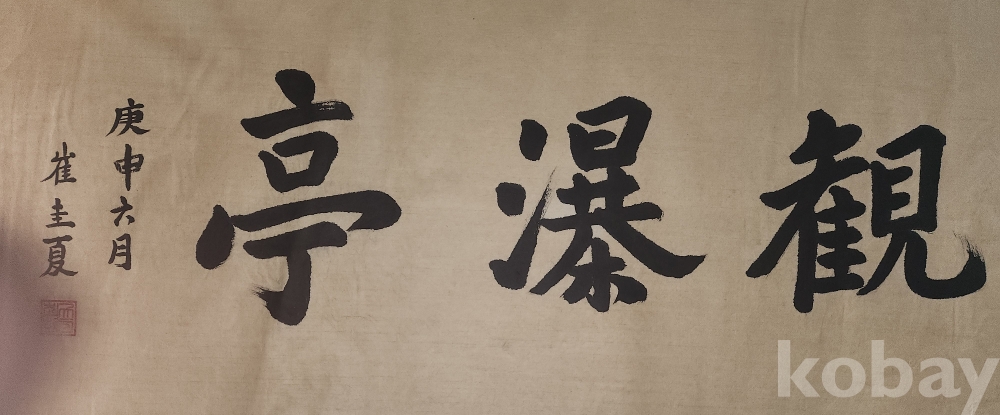 観瀑亭
庚申六月
崔圭夏
kobay